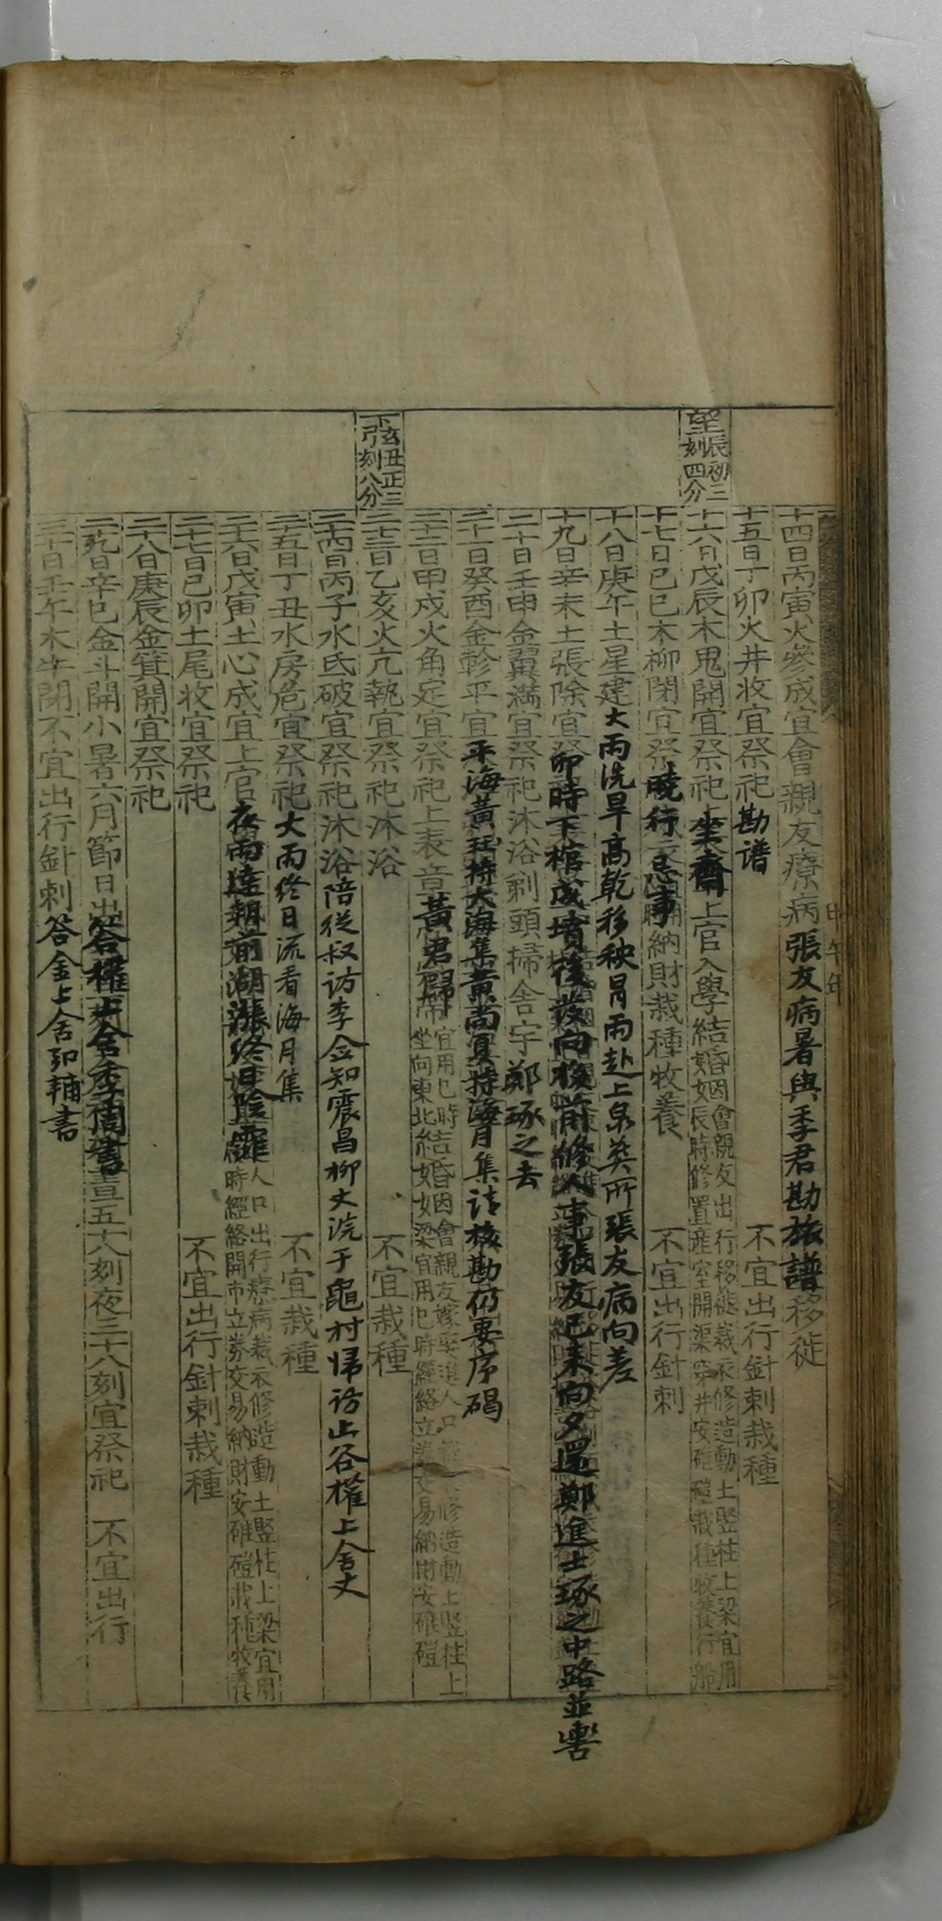 望 辰初三刻四分
下弦 丑正三刻八分
十四日丙寅火參成宜會親友療病 張友病暑與季君勘族譜 移徙
十五日丁卯火井收宜祭祀 勘譜 不宜出行針刺栽種
十六日戊辰木鬼開宜祭祀 坐齋 上官入學結婚姻會親友出行移徙裁衣修造動土竪柱上梁宜用辰時修置産室開渠穿井安碓磑栽種牧養行船
十七日己巳木柳閉宜祭 曉行忌事 納財栽種牧養 不宜出行針刺
十八日庚午土星建 大雨洗旱高乾移秧冒雨赴上泉葬所張友病向差
十九日辛未土張除宜祭 卯時下棺成墳後發向 前修人事張友已來向夕還鄭進士琢之中路並轡
二十日壬申金翼滿宜祭祀沐浴剃頭掃舍宇 鄭琢之去
二十一日癸酉金軫平宜 平海黃 持大海集黃尚夏持海月集請校勘仍要序碣
二十二日甲戌火角定宜祭祀上表章 黃君歸 宜用巳時坐向東北結婚姻會親友嫁娶進人口 修造動土竪柱上梁宜用巳時經絡立券交易納財安碓磑
二十三日乙亥火亢執宜祭祀沐浴 不宜栽種
二十四日丙子水氐破宜祭祀沐浴 陪從叔访李佥知震昌柳丈浣于龜村帰访止谷權上舍丈
二十五日丁丑水房危宜祭祀 大雨終日流看海月集 不宜栽種
二十六日戊寅土心成宜上官 夜雨達朝前湖漲終日陰霏 人口出行療病裁衣修造動土竪柱上梁宜用 時經絡開市立券交易納財安碓磑栽種牧養
二十七日己卯土尾收宜祭祀 不宜出行針刺栽種
二十八日庚辰金箕開宜祭祀
二十九日辛巳金斗開小暑六月節日出 答權上舍季周書 晝五十八刻夜三十八刻宜祭祀 不宜出行
三十日壬午木牛閉不宜出行針刺 答金上舍 輔書